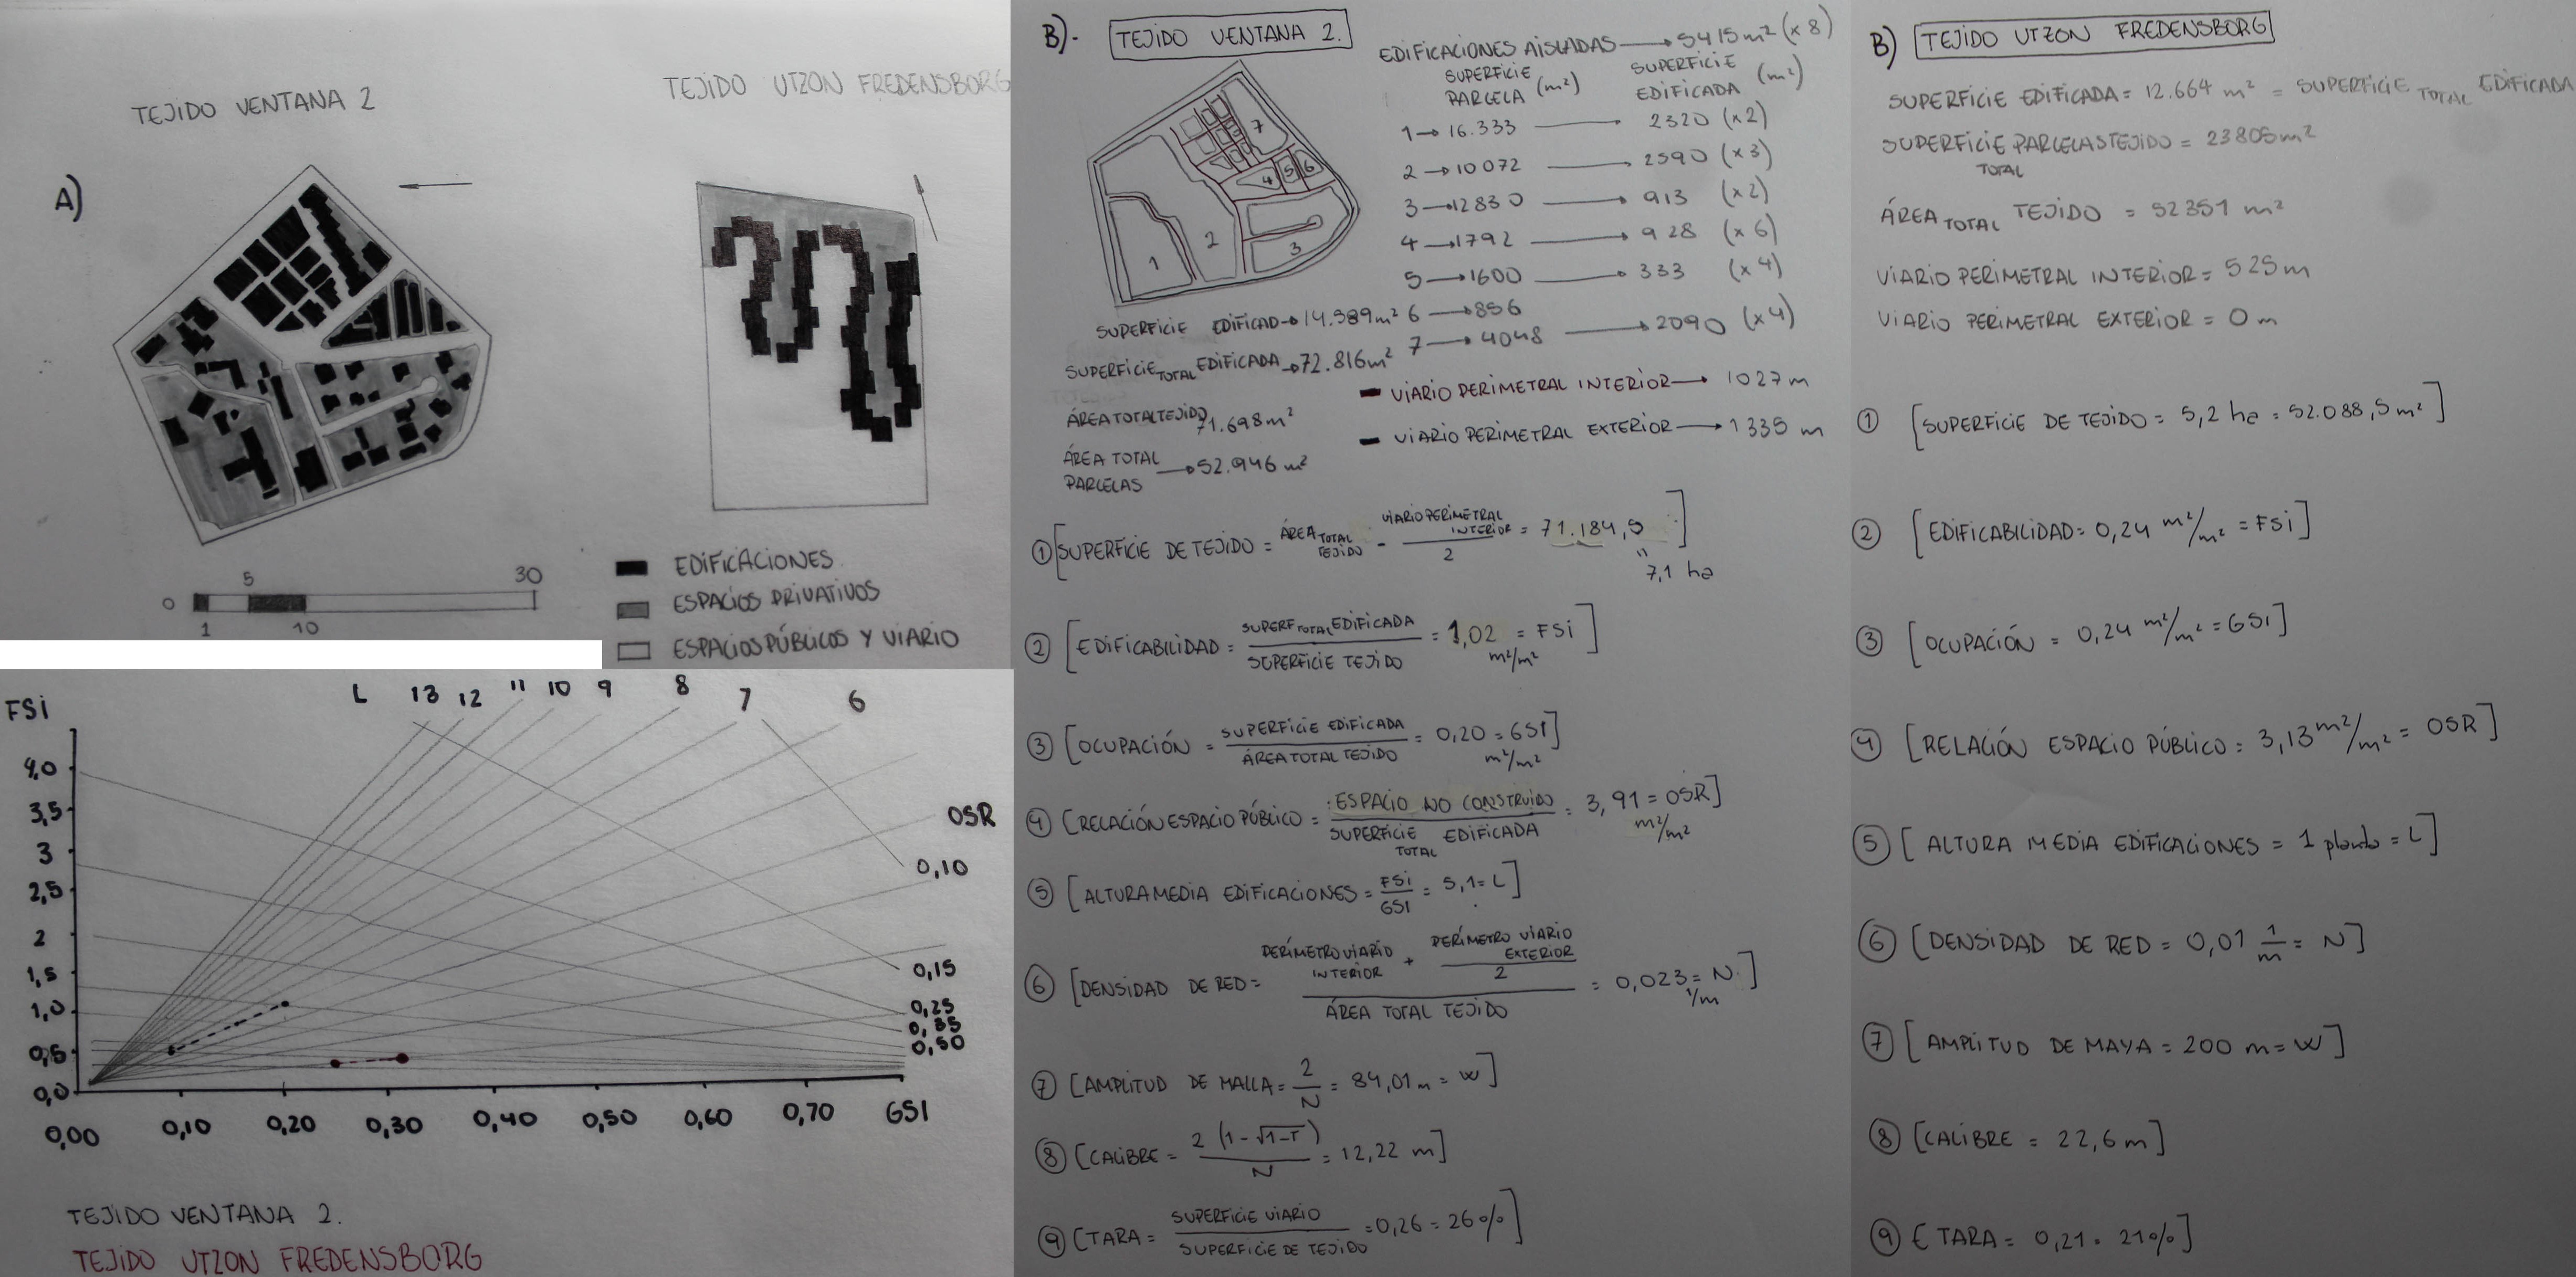 TEJIDO VENTANA 2
TEJIDO UTZON FREDENSBORG
A)
0
1
5
10
30
EDIFICACIONES
ESPACIOS PRIVATIVOS
ESPACIOS PÚBLICOS Y VIARIO
FSI
L 13 12 11 10 9 8 7 6
4,0
3,5
3
2,5
2
1,5
1,0
0,5
0,0
OSR
0,10
0,15
0,25
0,35
0,50
0,00 0,10 0,20 0,30 0,40 0,50 0,60 0,70 GSI
TEJIDO VENTANA 2.
TEJIDO UTZON FREDENSBORG
B).
TEJIDO VENTANA 2.
EDIFICACIONES AISLADAS → 5415 m² (x 8)
SUPERFICIE PARCELA (m²)
SUPERFICIE EDIFICADA (m²)
1 → 16.333 → 2320 (x2)
2 → 10072 → 2590 (x3)
3 → 12830 → 913 (x2)
4 → 1792 → 928 (x6)
5 → 1600 → 333 (x4)
6 → 856
7 → 4048 → 2090 (x4)
1
2
3
4
5
6
7
SUPERFICIE EDIFICAD → 14.589 m²
SUPERFICIE TOTAL EDIFICADA → 72.816 m²
VIARIO PERIMETRAL INTERIOR → 1027 m
VIARIO PERIMETRAL EXTERIOR → 1335 m
ÁREA TOTAL TEJIDO 71.698 m²
ÁREA TOTAL PARCELAS → 52.946 m²
① [SUPERFICIE DE TEJIDO = ÁREA TOTAL TEJIDO - VIARIO PERIMETRAL INTERIOR / 2 = 71.184,5]
"
7,1 ha
② [EDIFICABILIDAD = SUPERF TOTAL EDIFICADA / SUPERFICIE TEJIDO = 1,02 m²/m² = FSI]
③ [OCUPACIÓN = SUPERFICIE EDIFICADA / ÁREA TOTAL TEJIDO = 0,20 = GSI] m²/m²
④ [RELACIÓN ESPACIO PÚBLICO = ESPACIO NO CONSTRUIDO / SUPERFICIE TOTAL EDIFICADA = 3,91 = OSR] m²/m²
⑤ [ALTURA MEDIA EDIFICACIONES = FSI / GSI = 5,1 = L]
⑥ [DENSIDAD DE RED = PERÍMETRO VIARIO INTERIOR + PERÍMETRO VIARIO EXTERIOR / 2 / ÁREA TOTAL TEJIDO = 0,023 = N.] 1/m
⑦ [AMPLITUD DE MALLA = 2 / N = 84,01 m = W]
⑧ [CALIBRE = 2 (1-√1-T) / N = 12,22 m]
⑨ [TARA = SUPERFICIE VIARIO / SUPERFICIE DE TEJIDO = 0,26 = 26%]
B)
TEJIDO UTZON FREDENSBORG
SUPERFICIE EDIFICADA = 12.664 m² = SUPERFICIE TOTAL EDIFICADA
SUPERFICIE PARCELAS TEJIDO = 23805 m²
TOTAL
ÁREA TOTAL TEJIDO = 52351 m²
VIARIO PERIMETRAL INTERIOR = 525 m
VIARIO PERIMETRAL EXTERIOR = 0 m
① [SUPERFICIE DE TEJIDO = 5,2 ha = 52.088,5 m²]
② [EDIFICABILIDAD = 0,24 m²/m² = FSI]
③ [OCUPACIÓN = 0,24 m²/m² = GSI]
④ [RELACIÓN ESPACIO PÚBLICO = 3,13 m²/m² = OSR]
⑤ [ALTURA MEDIA EDIFICACIONES = 1 planta = L]
⑥ [DENSIDAD DE RED = 0,01 1/m = N]
⑦ [AMPLITUD DE MAYA = 200 m = W]
⑧ [CALIBRE = 22,6 m]
⑨ [TARA = 0,21 = 21%]